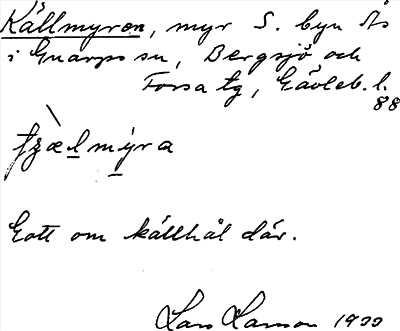 Källmyren, myr S. byn Ås
i Gnarps sn, Bergsjö och
Forsa tg, Gävleb. l.
88
tʒælmýra
Gott om källhål där.
Lars Larsson 1900